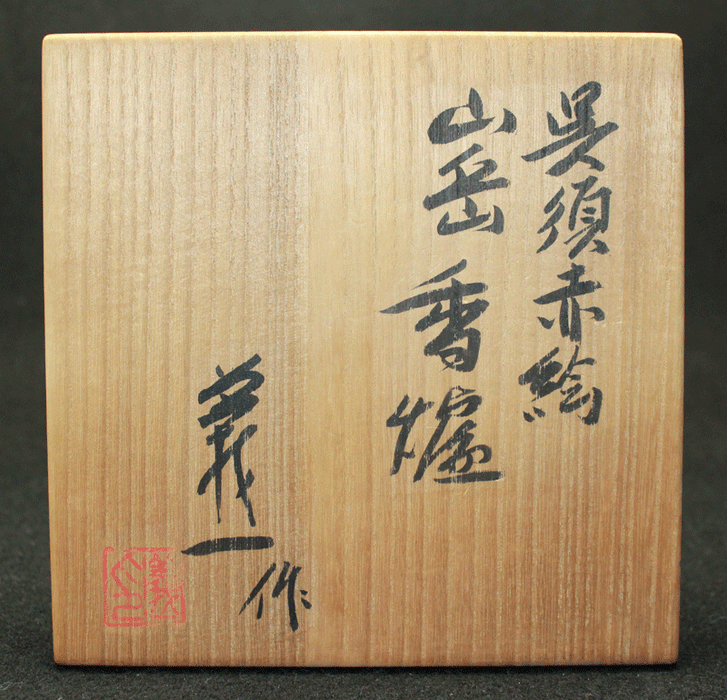 呉須赤絵
山岳香爐
義一作